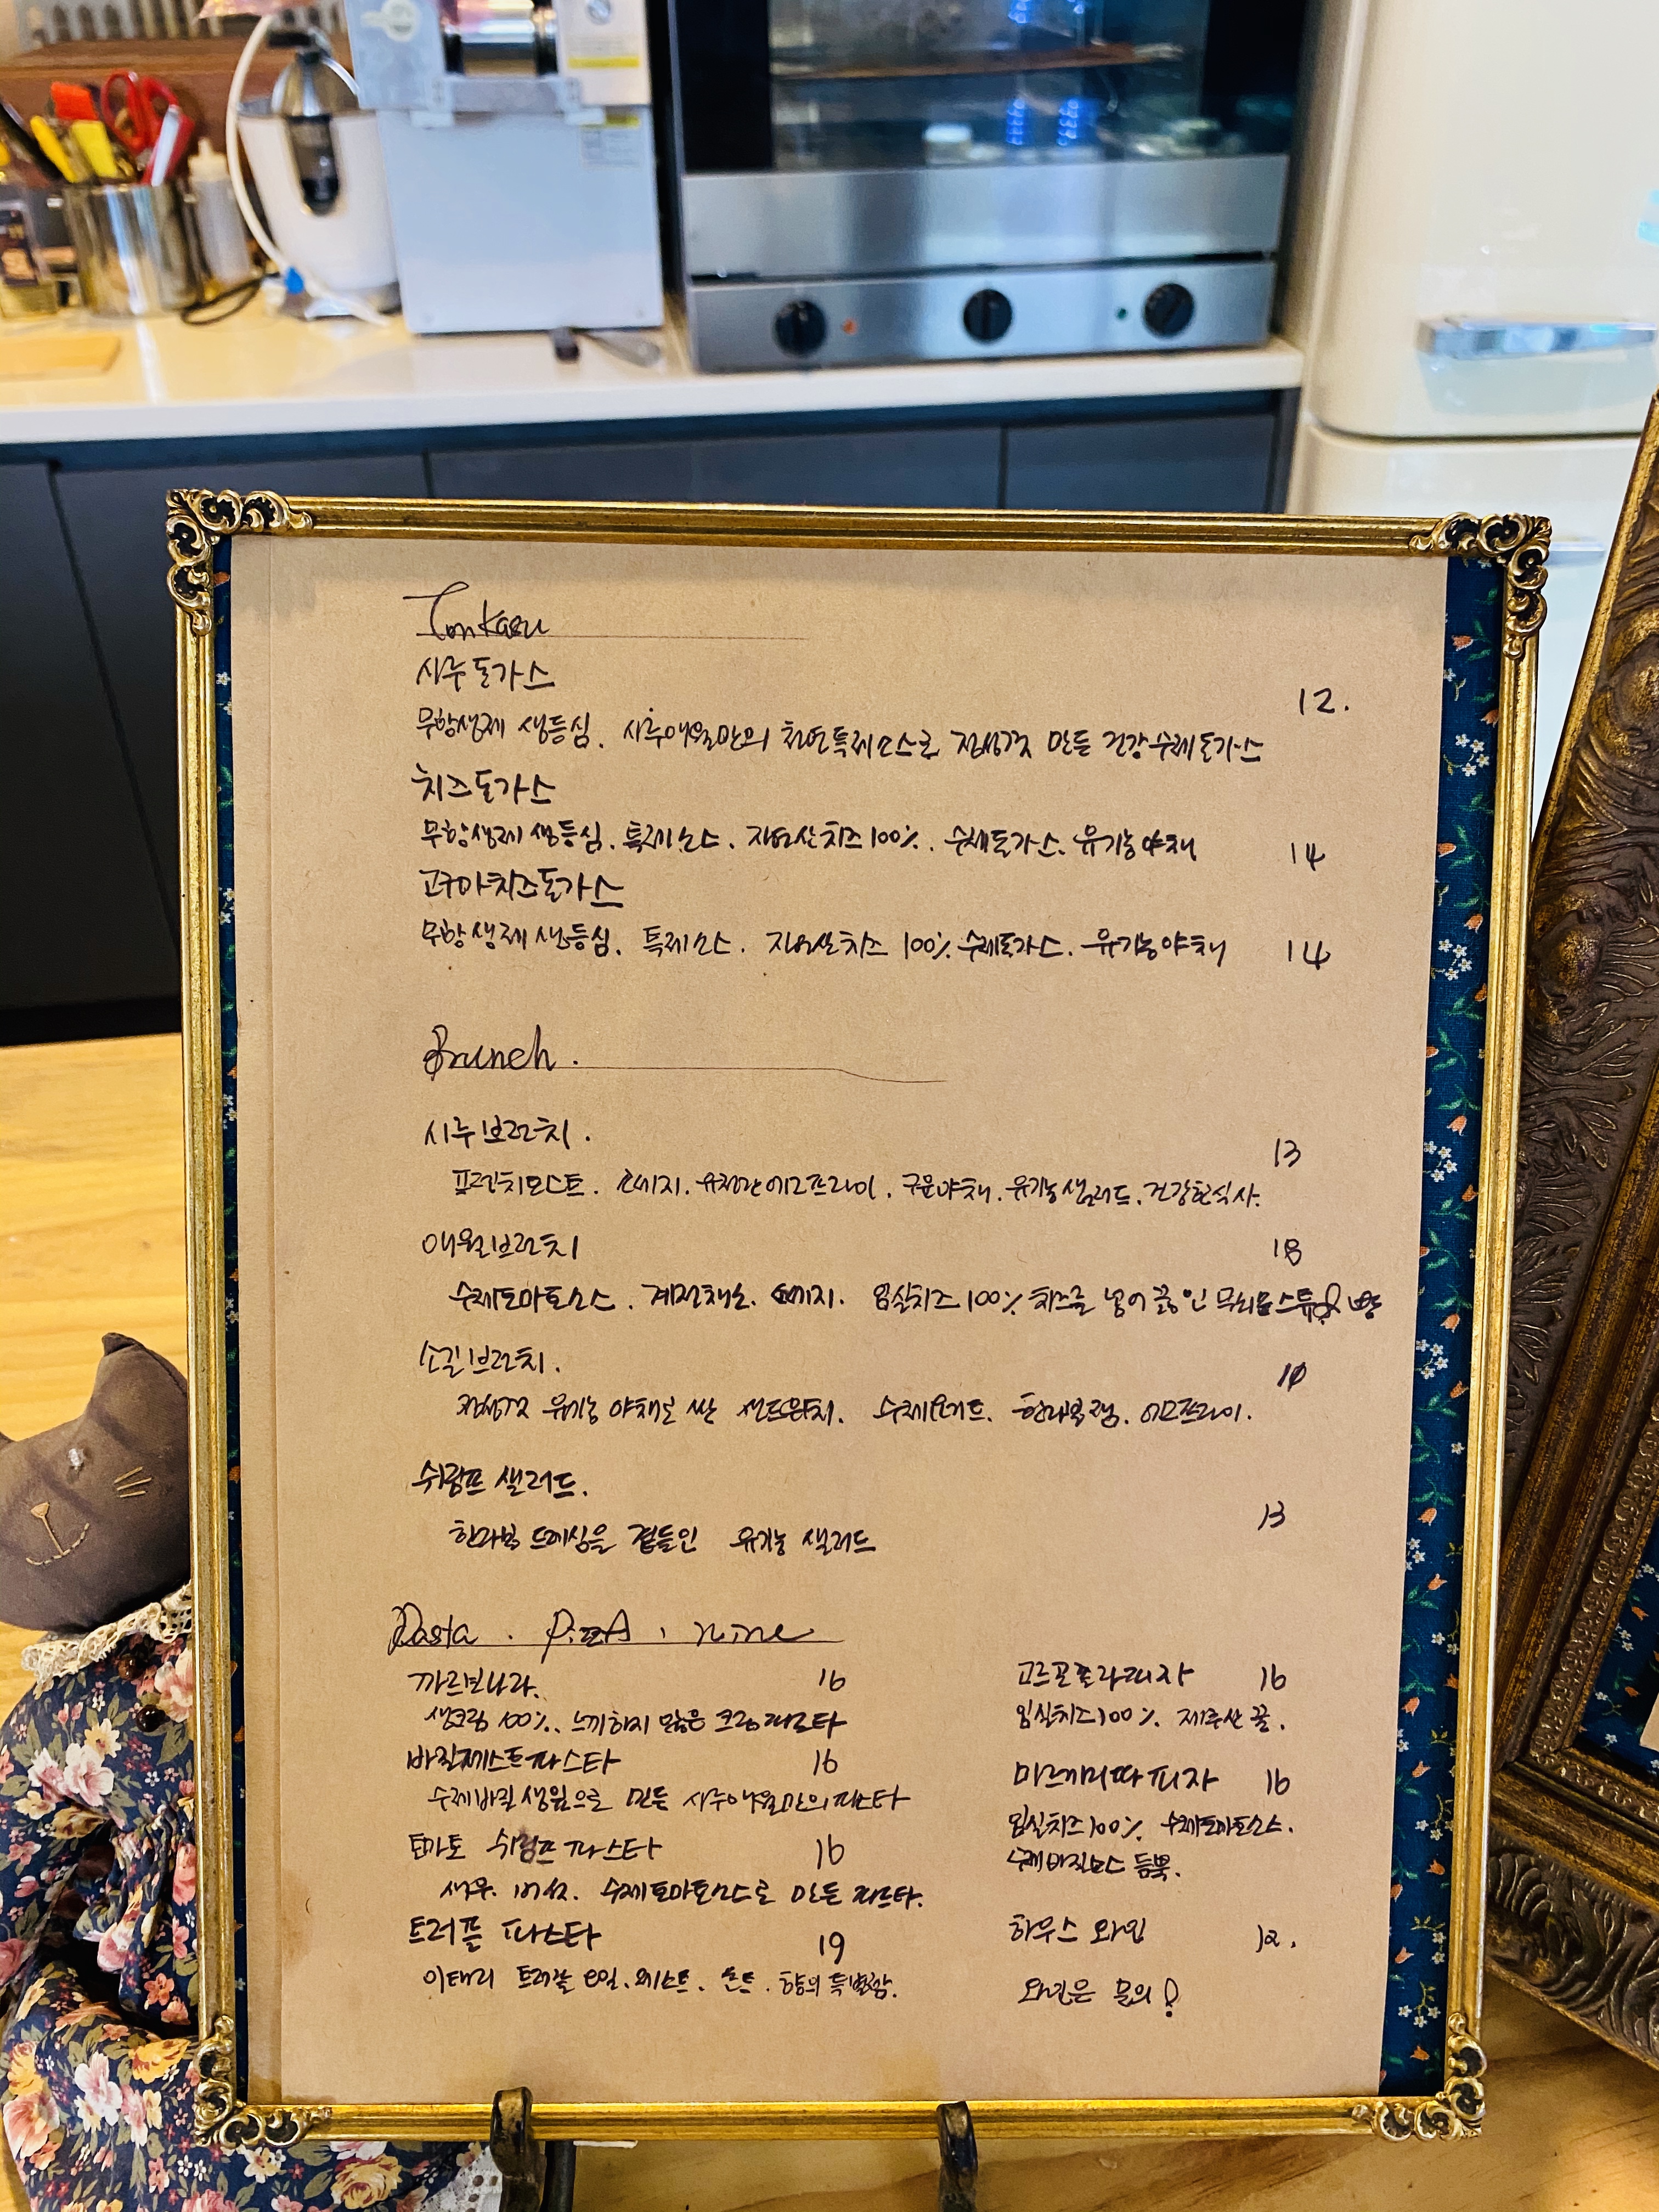 Tonkasu
시루돈가스
12.
무항생제 생등심. 시루애월만의 천연특제소스로 정성껏 만든 건강수제돈가스
치즈돈가스
무항생제 생등심. 특제소스. 자연산치즈100%. 수제돈가스. 유기농야채 14
고구마치즈돈가스
무항생제 생등심. 특제소스. 자연산치즈 100% 수제돈가스. 유기농야채 14
Brunch.
시루브런치.
13
프렌치토스트. 소세지. 유정란에그프라이. 구운야채. 유기농샐러드. 건강한식사.
애월브런치 18
수제토마토소스. 계절채소. 소세지. 임실치즈100% 치즈를 넣어 끓인 무쇠 스튜& 빵
소길브런치.
정성껏 유기농 야채로 싼 샌드위치. 수제요거트. 한라봉잼. 에그프라이.
쉬림프 샐러드.
13
한라봉 드레싱을 곁들인 유기농 샐러드
Pasta. PizzA. wine
까르보나라. 16
생크림 100%. 느끼하지 않은 크림파스타
바질페스토파스타 16
수제바질 생잎으로 만든 시루애월만의파스타
토마토 쉬림프파스타 16
새우. 버섯. 수제토마토소스로 만든 파스타.
트러플 파스타 19
이태리 트러플 오일. 페스토. 향의 특별함.
고르곤졸라피자 16
임실치즈100%. 제주산 꿀.
마르게리따 피자 16
임실치즈100%. 수제토마토소스.
수제바질소스 듬뿍.
하우스 와인 12.
와인은 문의!